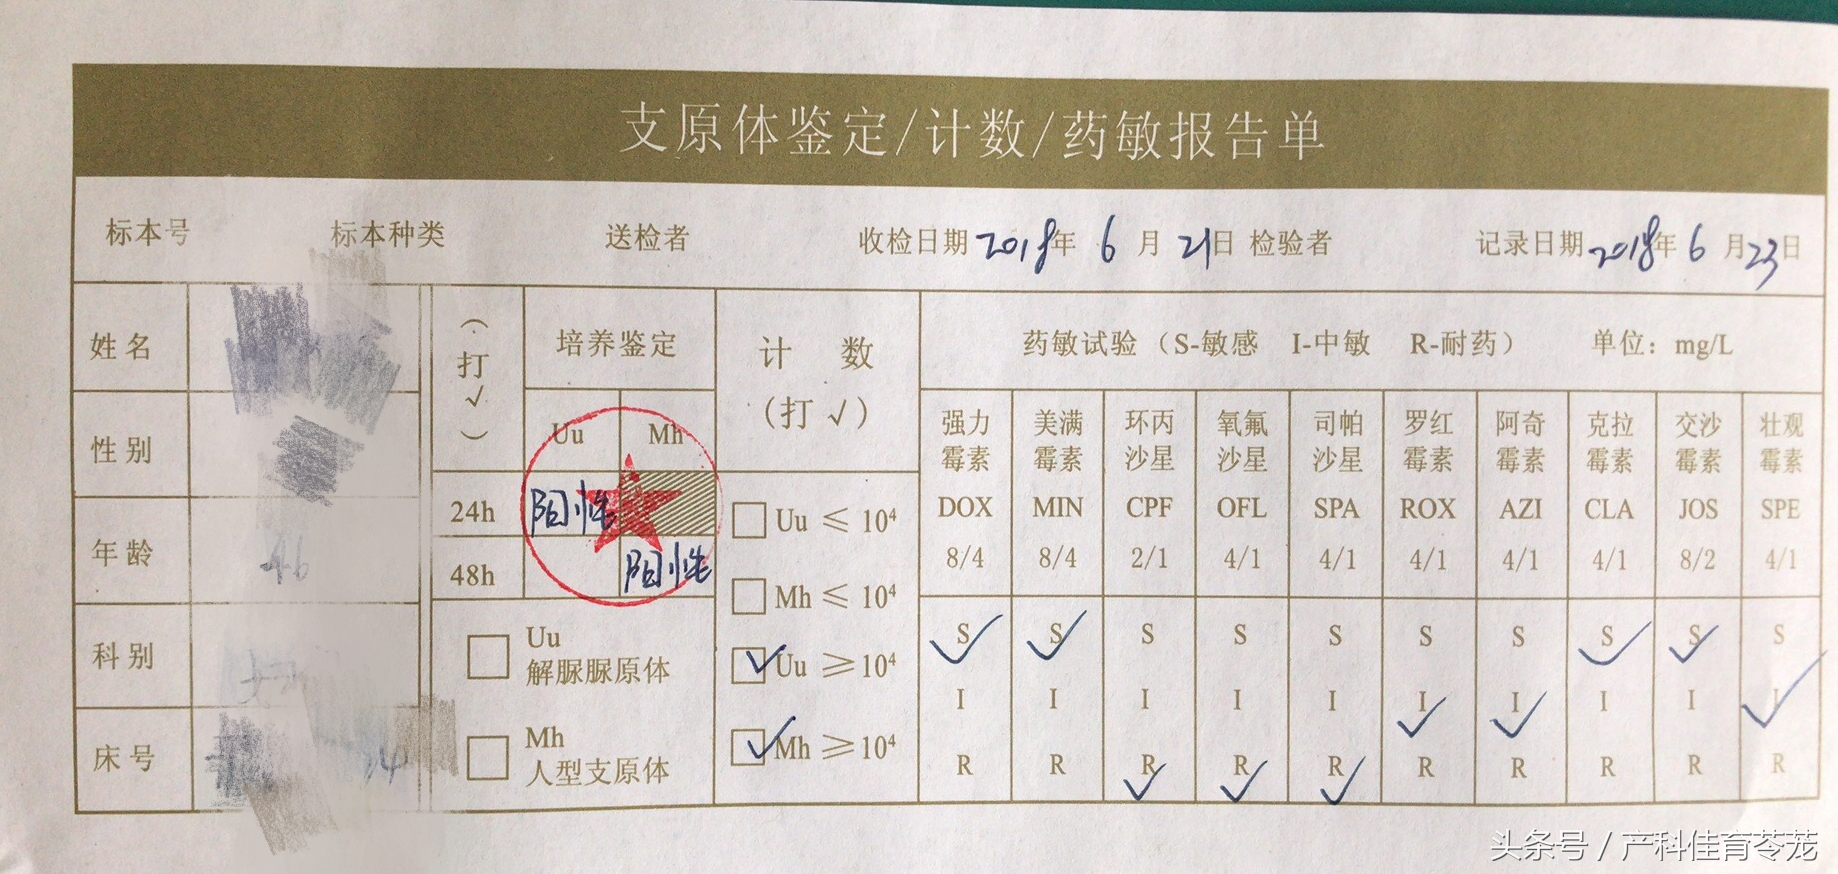 支原体鉴定/计数/药敏报告单
标本号 标本种类 送检者 收检日期 2018年 6 月 21日 检验者 记录日期 2018年 6 月 23日
姓名
性别
年龄 46
科别
床号
（打√）
培养鉴定
Uu Mh
24h 阳性
48h 阳性
Uu
解脲脲原体
Mh
人型支原体
计 数
（打 √）
Uu ≤ 10⁴
Mh ≤ 10⁴
✓ Uu ≥ 10⁴
✓ Mh ≥ 10⁴
药敏试验（S-敏感 I-中敏 R-耐药） 单位：mg/L
强力 美满 环丙 氧氟 司帕 罗红 阿奇 克拉 交沙 壮观
霉素 霉素 沙星 沙星 沙星 霉素 霉素 霉素 霉素 霉素
DOX MIN CPF OFL SPA ROX AZI CLA JOS SPE
8/4 8/4 2/1 4/1 4/1 4/1 4/1 4/1 8/2 4/1
S✓ S✓ S S S S S S✓ S✓ S
I I I I I I✓ I✓ I I I✓
R R R✓ R✓ R✓ R R R R R
头条号 / 产科佳育苓茏